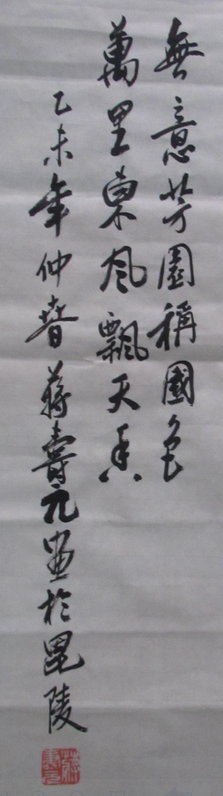 無意芳園稱國色
萬里東風飄天香
乙未年仲春蔣壽元畫於毘陵
蔣壽元